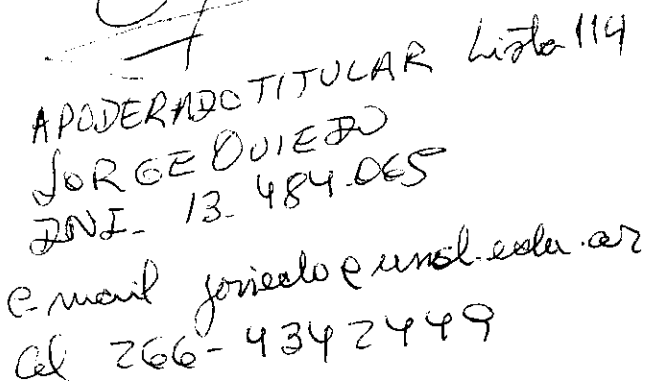 APODERADO TITULAR Lista 114
JORGE OVIEDO
DNI- 13.484.065
e-mail joviedo@unsl.edu.ar
Cel 266-4342449